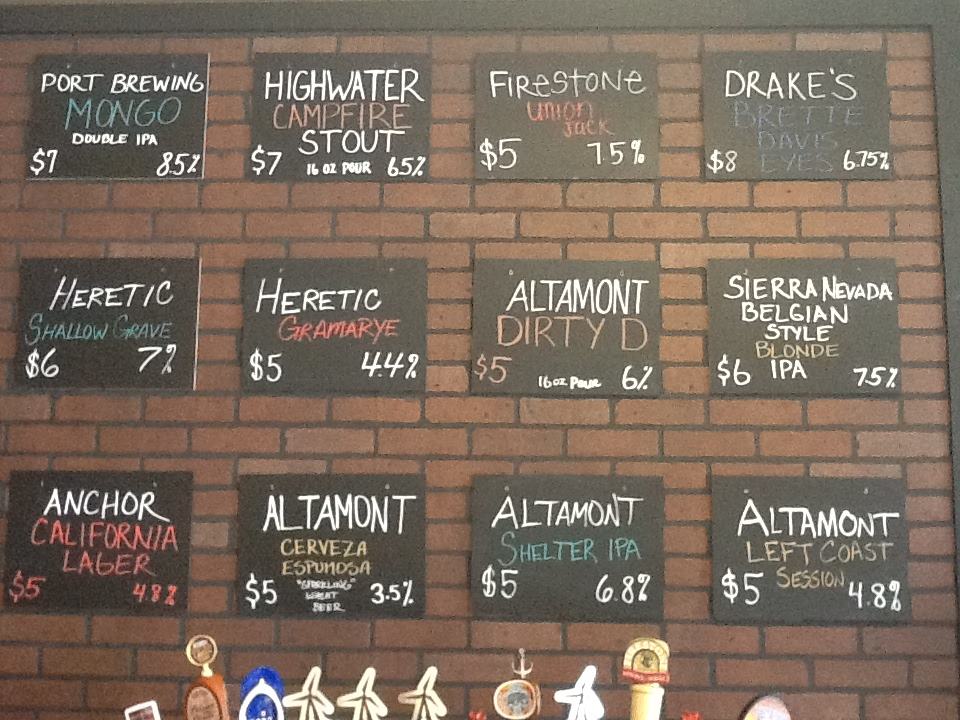 PORT BREWING
MONGO
DOUBLE IPA
$7 8.5%
HIGHWATER
CAMPFIRE
STOUT
$7 16 OZ POUR 6.5%
FIRESTONE
UNION
JACK
$5 7.5%
DRAKE'S
BRETTE
DAVIS
$8 EYES 6.75%
HERETIC
SHALLOW GRAVE
$6 7%
HERETIC
GRAMARYE
$5 4.4%
ALTAMONT
DIRTY D
$5 16oz Pour 6%
SIERRA NEVADA
BELGIAN
STYLE
BLONDE
$6 IPA 7.5%
ANCHOR
CALIFORNIA
LAGER
$5 4.8%
ALTAMONT
CERVEZA
ESPUMOSA
"SPARKLING"
$5 WHEAT 3.5%
BEER
ALTAMONT
SHELTER IPA
$5 6.8%
ALTAMONT
LEFT COAST
$5 SESSION 4.8%